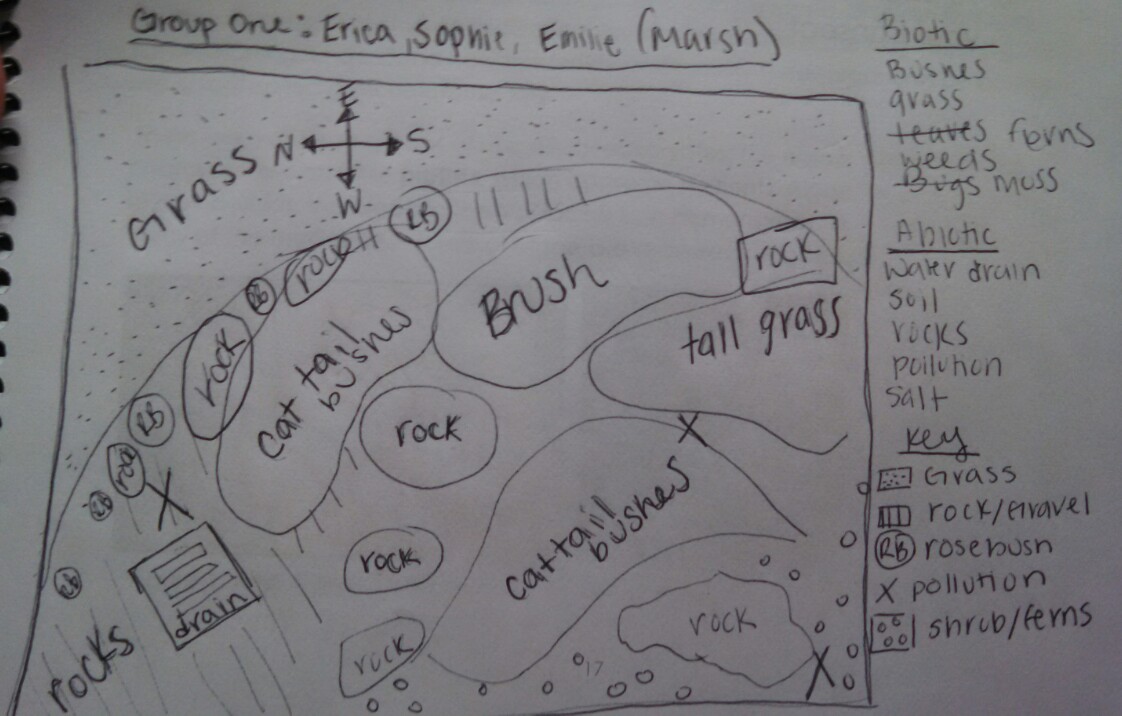 Group One: Erica, Sophie, Emilie (Marsh)
E
N S
W
Grass
RB
rock
RB
rock
Brush
rock
tall grass
cat tail
bushes
RB
rock
rock
RB
X
X
cattail
bushes
rock
drain
RB
rocks
rock
rock
X
Biotic
Bushes
grass
leaves ferns
weeds
Bugs moss
Abiotic
Water drain
Soil
rocks
pollution
salt
Key
Grass
rock/Gravel
RB rosebush
X pollution
shrub/ferns